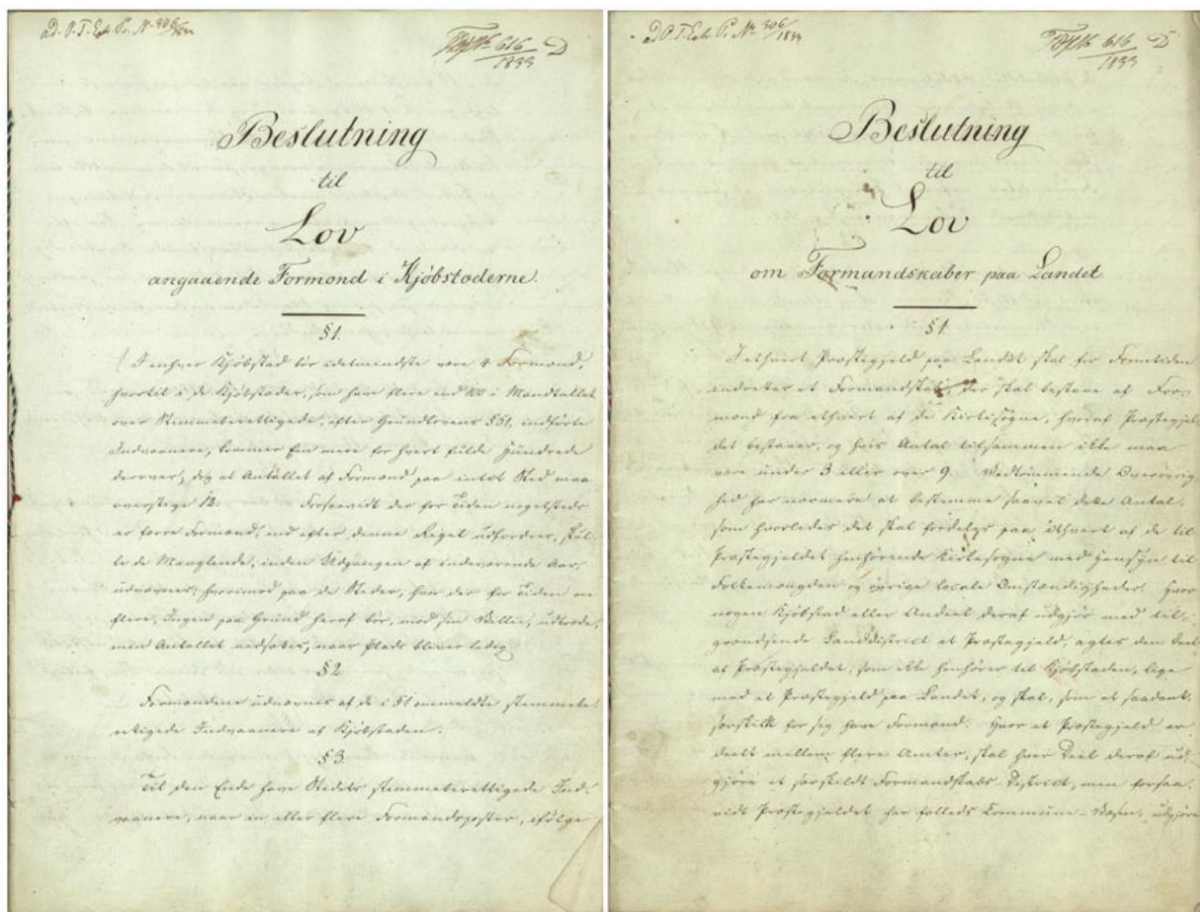 Beslutning
til
Lov
angaaende Formænd i Kjøbstæderne.
§1.
I enhver Kjøbstad bør idetmindste være 4 Formænd,
hvortil i de Kjøbstæder, som have flere end 100 i Mandtallet
over Stemmeberettigede, efter Grundlovens §51, indførte
Indvaanere, kommer Een mere for hvert fulde Hundrede
derover, dog at Antallet af Formænd paa intet Sted maa
overstige 12. Forsaavidt der for Tiden nogetsteds
er færre Formænd, end efter denne Regel udfordres, skul-
le de Manglende, inden Udgangen af indeværende Aar,
udnævnes; hvorimod paa de Steder, hvor der for Tiden ere
flere, Ingen paa Grund heraf bør, mod sin Villie, udtræde,
men Antallet nedsættes, naar Plads bliver ledig.
§2.
Formændene udnævnes af de i §1 ommeldte stemmebe-
rettigede Indvaanere af Kjøbstaden.
§3.
Til den Ende have Stedets stemmeberettigede Ind-
vaanere, naar en eller flere Formandsposter, ifølge
Beslutning
til
Lov
om Formandskaber paa Landet
§1.
I ethvert Præstegjeld paa Landet skal for Fremtiden
indrettes et Formandskab, der skal bestaae af For-
mænd fra ethvert af de Kirkesogne, hvoraf Præstegjel
det bestaaer, og hvis Antal tilsammen ikke maa
være under 3 eller over 9. Vedkommende Overøvrig
hed har nærmere at bestemme saavel dette Antal,
som hvorledes det skal fordeles paa ethvert af de til
Præstegjeldet henhørende Kirkesogne med Hensyn til
Folkemængden og øvrige locale Omstændigheder. Hvor
nogen Kjøbstad eller Andeel deraf udgjør med til-
grændsende Landdistrict et Præstegjeld, agtes den Deel
af Præstegjeldet, som ikke henhører til Kjøbstaden, lige
med et Præstegjeld paa Landet, og skal, som et saadant,
særskilt for sig have Formænd. Hvor et Præstegjeld er
deelt mellem flere Amter, skal hver Deel deraf ud-
gjøre et særskildt Formandskabs-District, men forsaa-
vidt Præstegjeldet har fælleds Commune-Væsen, udgjøre